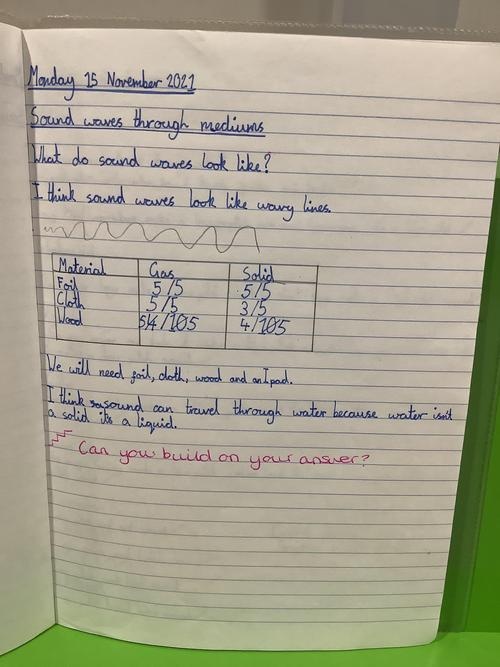 Monday 15 November 2021
Sound waves through mediums
What do sound waves look like?
I think sound waves look like wavy lines.
Material Gas Solid
Foil 5/5 5/5
Cloth 5/5 3/5
Wood 4/5 4/5
We will need foil, cloth, wood and an Ipad.
I think sound can travel through water because water isn't
a solid it's a liquid.
Can you build on your answer?